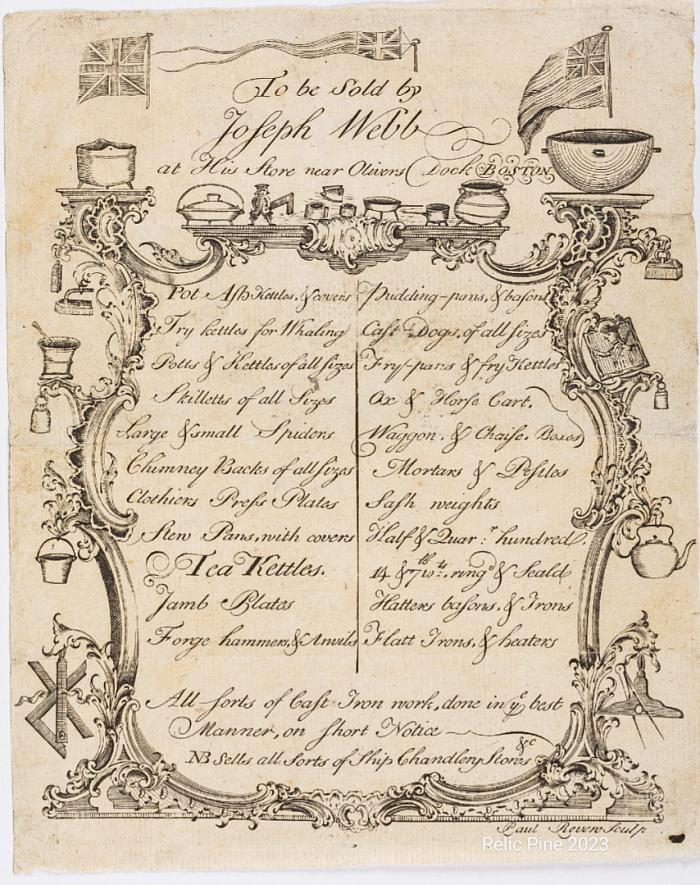 To be Sold by
Joseph Webb
at His Store near Olivers Dock BOSTON
Pot Ash Kettles, & covers
Try kettles for Whaling
Potts & Kettles of all sizes
Skilletts of all Sizes
Large & small Spiders
Chimney Backs of all sizes
Clothiers Press Plates
Stew Pans, with covers
Tea Kettles.
Jamb Plates
Forge hammers, & Anvils
Pudding-pans, & basons
Cast Dogs, of all sizes
Fry-pans & fry Kettles
Ox & Horse Cart,
Waggon, & Chaise, Boxes
Mortars & Pestles
Sash weights
Half & Quar:r hundred,
14 & 7th wts, ring'd & Seald
Hatters basons, & Irons
Flatt Irons, & heaters
All sorts of Cast Iron work, done in ye best
Manner, on short Notice
NB Sells all Sorts of Ship Chandlery Stores &c
Paul Revere Sculp
Relic Pine 2023